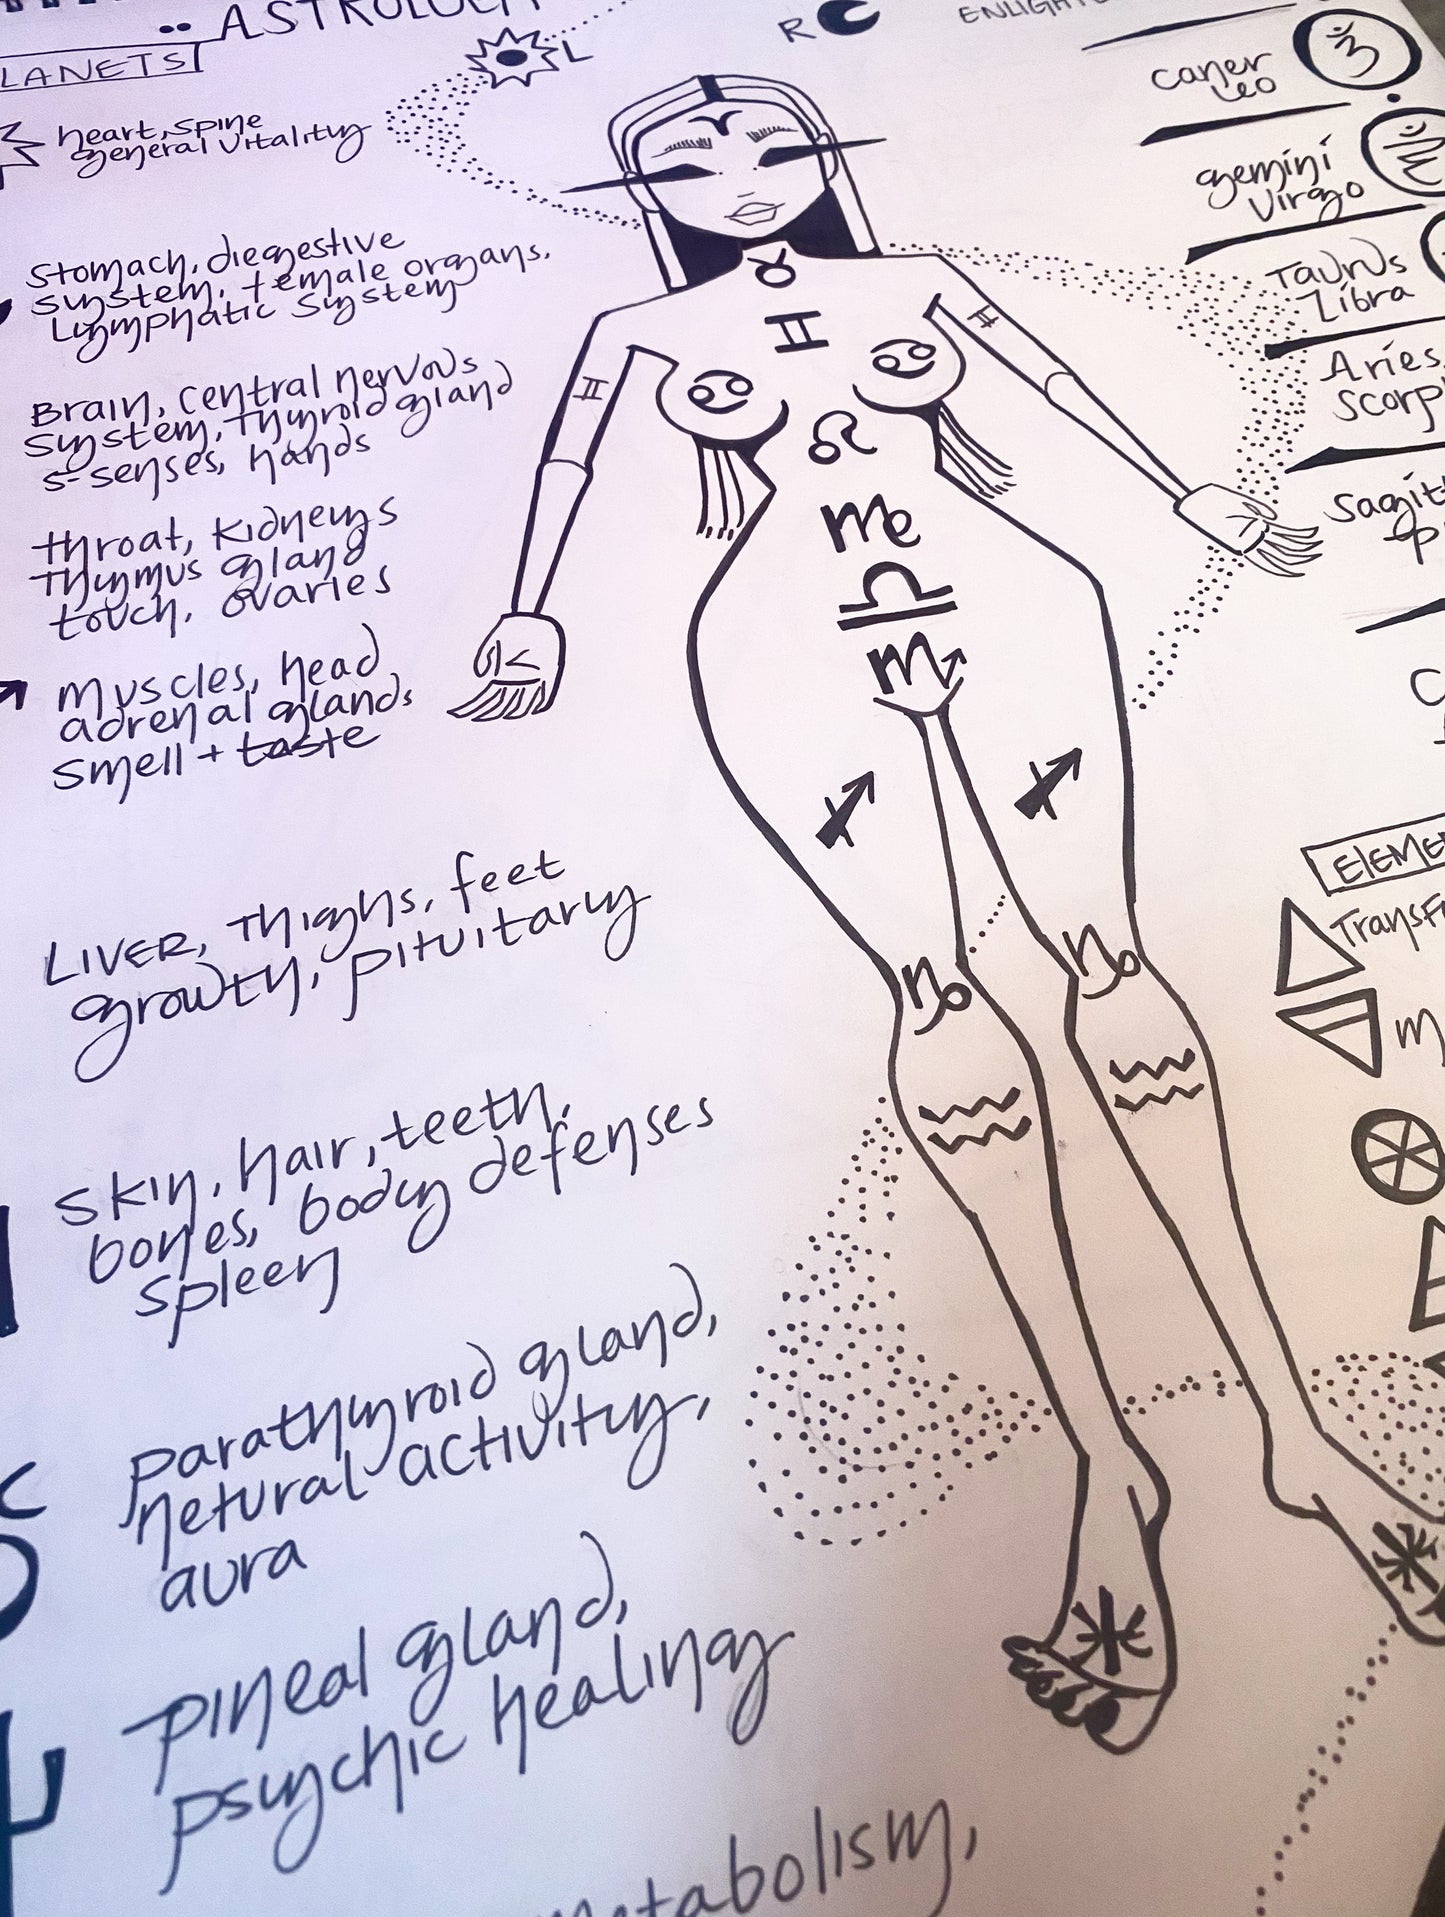 ASTROLOGY
LANETS
L
R
heart, spine
general vitality
stomach, diegestive
system, female organs,
Lymphatic System
Brain, central nervous
system, thyroid gland
5-senses, hands
throat, kidneys
thymus gland
touch, ovaries
muscles, head
adrenal glands
smell + taste
LIVER, thighs, feet
growth, pituitary
skin, hair, teeth,
bones, body defenses
spleen
parathyroid gland,
netural activity,
aura
pineal gland,
psychic healing
metabolism,
ENLIGHT
caner
Leo
gemini
Virgo
Taurus
Libra
Aries
Scorp
Sagit
P
ELEME
TransF
M
ॐ
♉
♊
♊
♊
♋
♋
♌
me
♎
♏
♐
♐
♑
♑
♒
♒